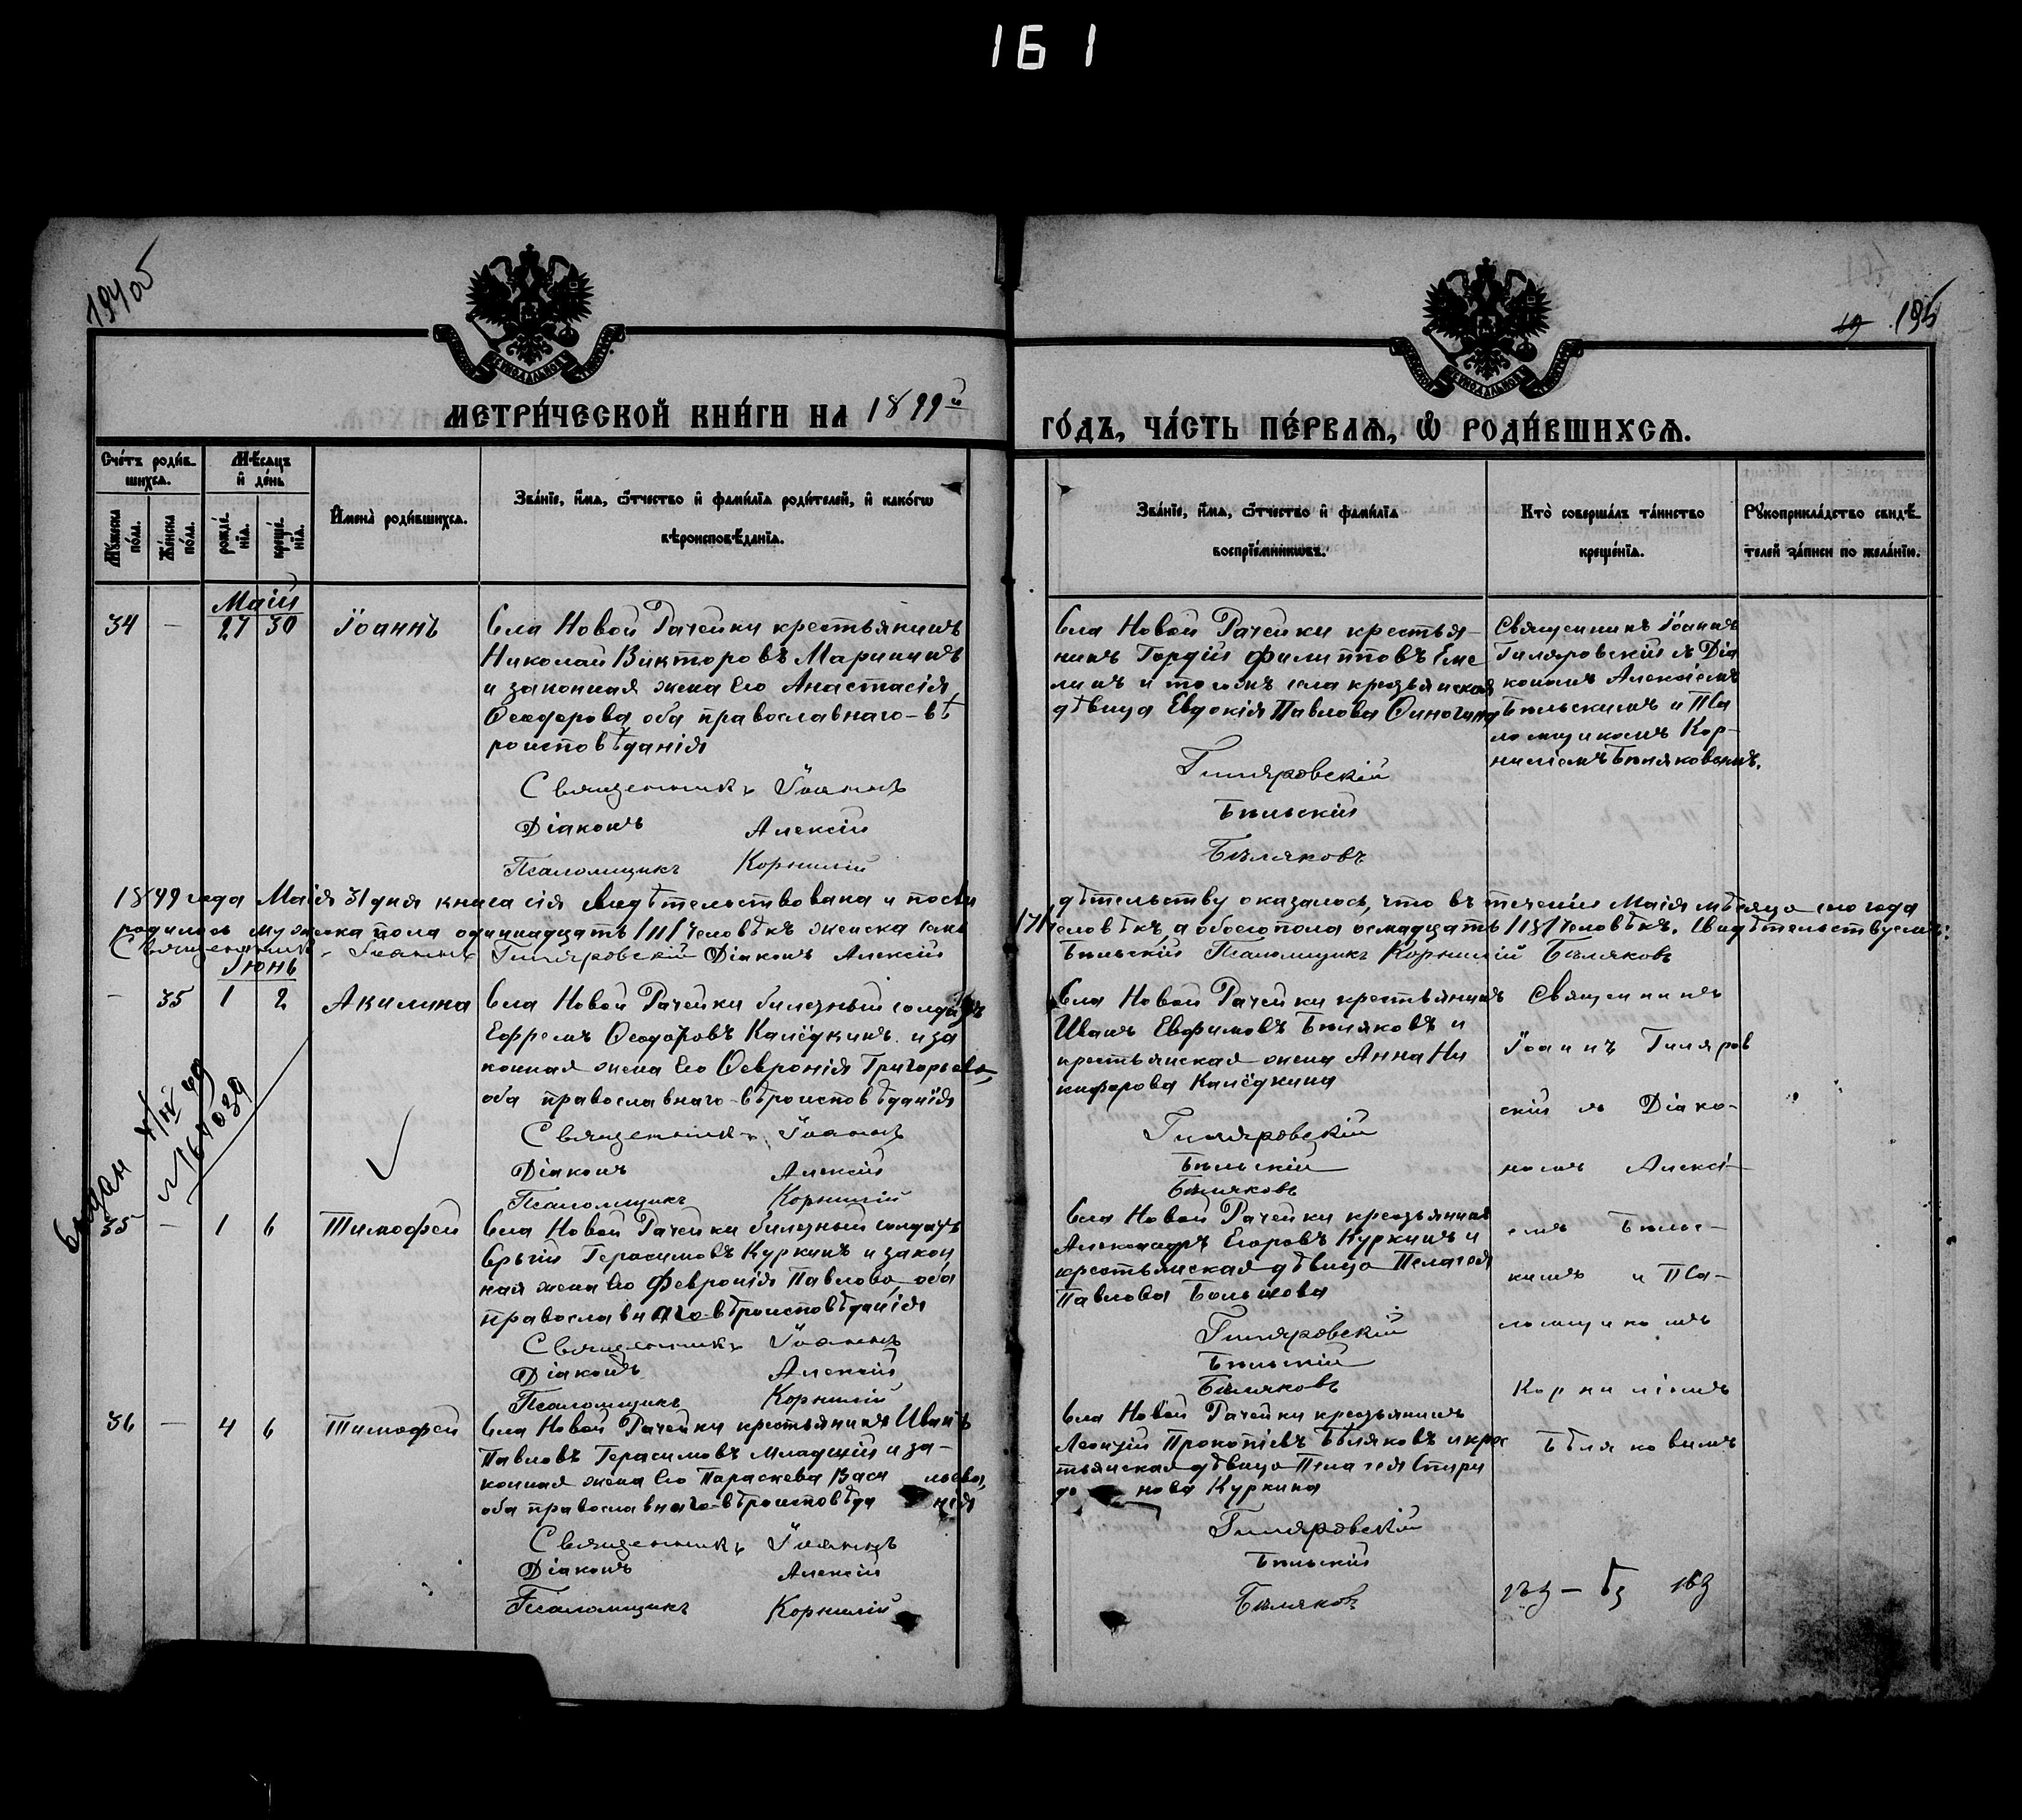 161
194об
19 195
МЕТРИ́ЧЕСКОЙ КНИ́ГИ НА 1899й
ГО́ДЪ, ЧА́СТЬ ПЕ́РВАѦ, Ѿ РОДИ́ВШИХСѦ.
Сче́тъ роди́в-
шихсѧ.
Мѣ́сѧцъ
и҆ де́нь
Мꙋ́жеска по́ла.
Же́нска по́ла.
рожде́нїѧ.
креще́нїѧ.
И҆мена̀ роди́вшихсѧ.
Зва́нїе, и҆́мѧ, ѻ҆́тчество и҆ фами́лїѧ роди́телей, и҆ како́гѡ
вѣроисповѣ́данїѧ.
Зва́нїе, и҆́мѧ, ѻ҆́тчество и҆ фами́лїѧ
воспрїе́мникѡвъ.
Кто̀ соверша́лъ та́инство
креще́нїѧ.
Рꙋкоприкла́дство свидѣ́-
телей за́писи по жела́нїю.
Маій
34 — 27 30 Іоаннъ
Села Новой Рачейки крестьянинъ
Николай Викторовъ Марининъ
и законная жена его Анастасія
Ѳеодорова оба православнаго-вѣ
роисповѣданія
Священникъ Іоаннъ
Діаконъ Алексій
Псаломщикъ Корнилій
Села Новой Рачейки крестья-
нинъ Гордій Филипповъ Еме
линъ и того же села крестьянская
дѣвица Евдокія Павлова
Гиляровскій
Бѣльскій
Бѣляковъ
Священникъ Іоаннъ
Гиляровскій съ Діа
кономъ Алексіемъ
Бѣльскимъ и Пса
ломщикомъ Кор-
ниліемъ Бѣляковымъ.
1899 года Маія 31 дня книга сія свидѣтельствована и по сви
дѣтельству оказалось, что въ теченіи Маія мѣсяца сего года
родилось мужеска пола одиннадцать /11/ человѣкъ женска семь
/7/ человѣкъ, а обоего пола осмнадцать /18/ человѣкъ. Свидѣтельствуемъ:
Священникъ Іоаннъ Гиляровскій Діаконъ Алексій
Бѣльскій Псаломщикъ Корнилій Бѣляковъ
Іюнь
— 35 1 2 Акилина
Села Новой Рачейки билетный солдатъ
Ефремъ Ѳеодоровъ Калёдкинъ и за
конная жена его Ѳевронія Григорьева,
оба православнаго-вѣроисповѣданія
Священникъ Іоаннъ
Діаконъ Алексій
Псаломщикъ Корнилій
Села Новой Рачейки крестьянинъ
Иванъ Евфимовъ Бѣляковъ и
крестьянская жена Анна Ни
кифорова Калёдкина
Гиляровскій
Бѣльскій
Бѣляковъ
Священникъ
Іоаннъ Гиляров
скій съ Діако-
номъ Алексі-
емъ Бѣльс-
кимъ и Пса-
ломщикомъ
Корниліемъ
Бѣляковымъ
№ 164039
35 — 1 6 Тимофей
Села Новой Рачейки билетный солдатъ
Сергій Герасимовъ Куркинъ и закон
ная жена его Февронія Павлова, оба
православнаго-вѣроисповѣданія
Священникъ Іоаннъ
Діаконъ Алексій
Псаломщикъ Корнилій
Села Новой Рачейки крестьянинъ
Александръ Егоровъ Куркинъ и
крестьянская дѣвица Пелагея
Павлова
Гиляровскій
Бѣльскій
Бѣляковъ
36 — 4 6 Тимофей
Села Новой Рачейки крестьянинъ Иванъ
Павловъ Герасимовъ младшій и за-
конная жена его Параскева Васильева,
оба православнаго-вѣроисповѣданія
Священникъ Іоаннъ
Діаконъ Алексій
Псаломщикъ Корнилій
Села Новой Рачейки крестьянинъ
Леонтій Прокопіевъ Бѣляковъ и крес
тьянская дѣвица Пелагея Спири
донова Куркина
Гиляровскій
Бѣльскій
Бѣляковъ